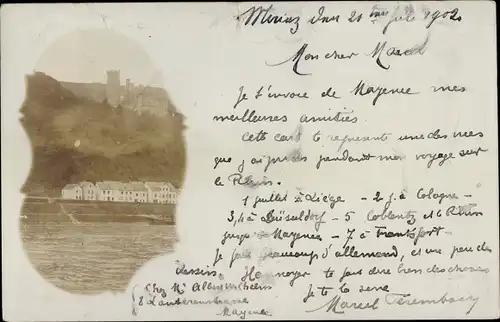 Mainz den 21 juli 1902
Mon cher Marcel
Je t'envoie de Mayence mes
meilleures amitiés.
Cette carte te représente une des vues
que j'ai prises pendant mon voyage sur
le Rhin.
1 juillet à Liège - 2 j. à Cologne -
3,4 à Düsseldorf - 5 Coblentz et le Rhin
jusqu'à Mayence - 7 à Francfort -
Je fais beaucoup d'allemand, et un peu de
dessin. te fait dire bien des choses
Je te serre
Marcel
Chez Mr
Mayence